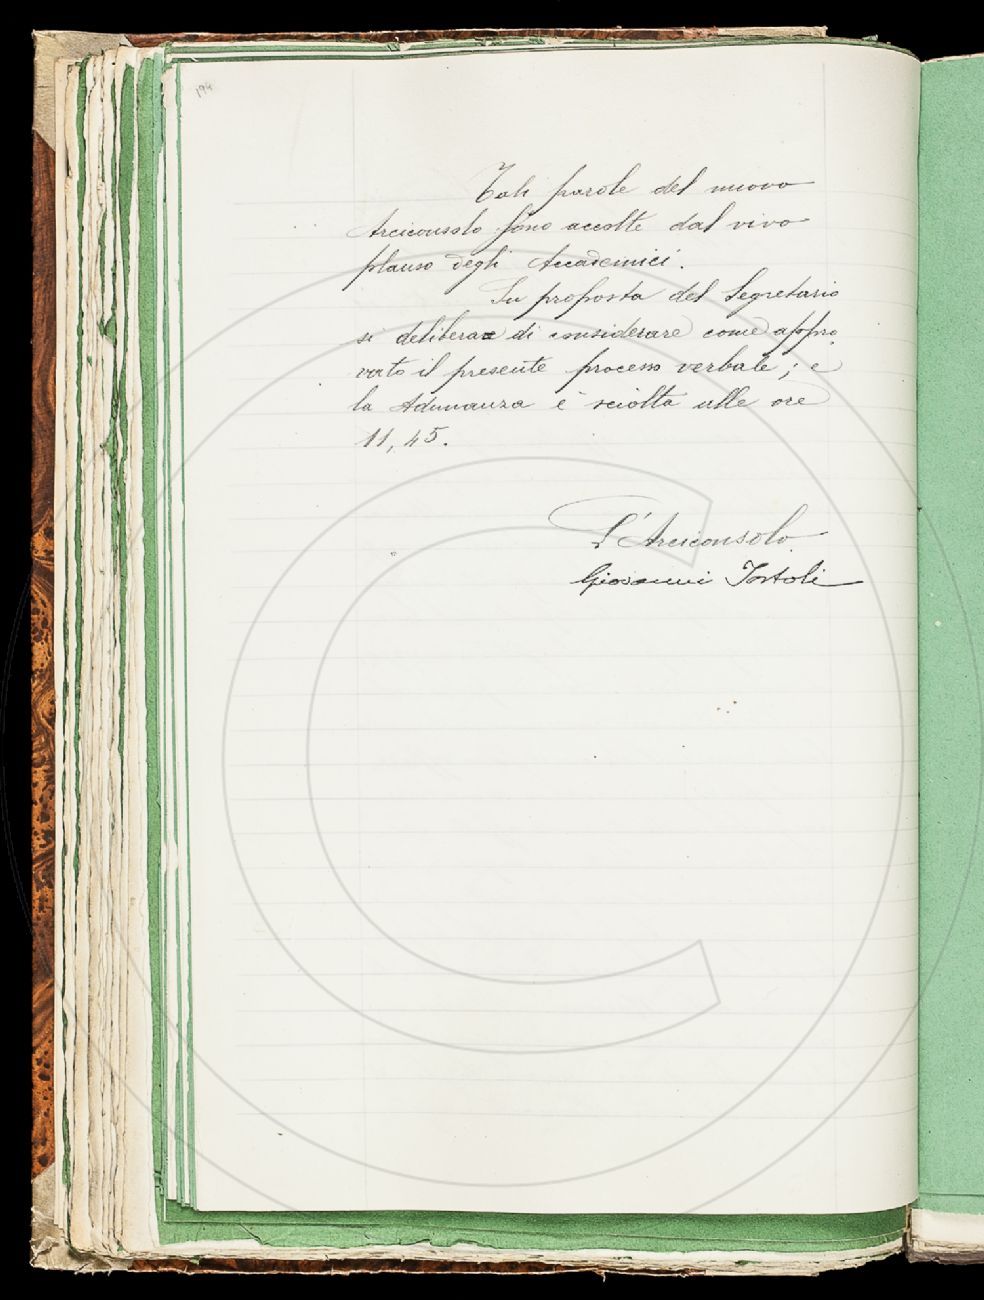 194
Tali parole del nuovo
Arciconsolo sono accolte dal vivo
plauso degli Accademici.
Su proposta del Segretario
si delibera di considerare come appro
vato il presente processo verbale; e
la Adunanza è sciolta alle ore
11,45.
L'Arciconsolo
Giovanni Tortoli